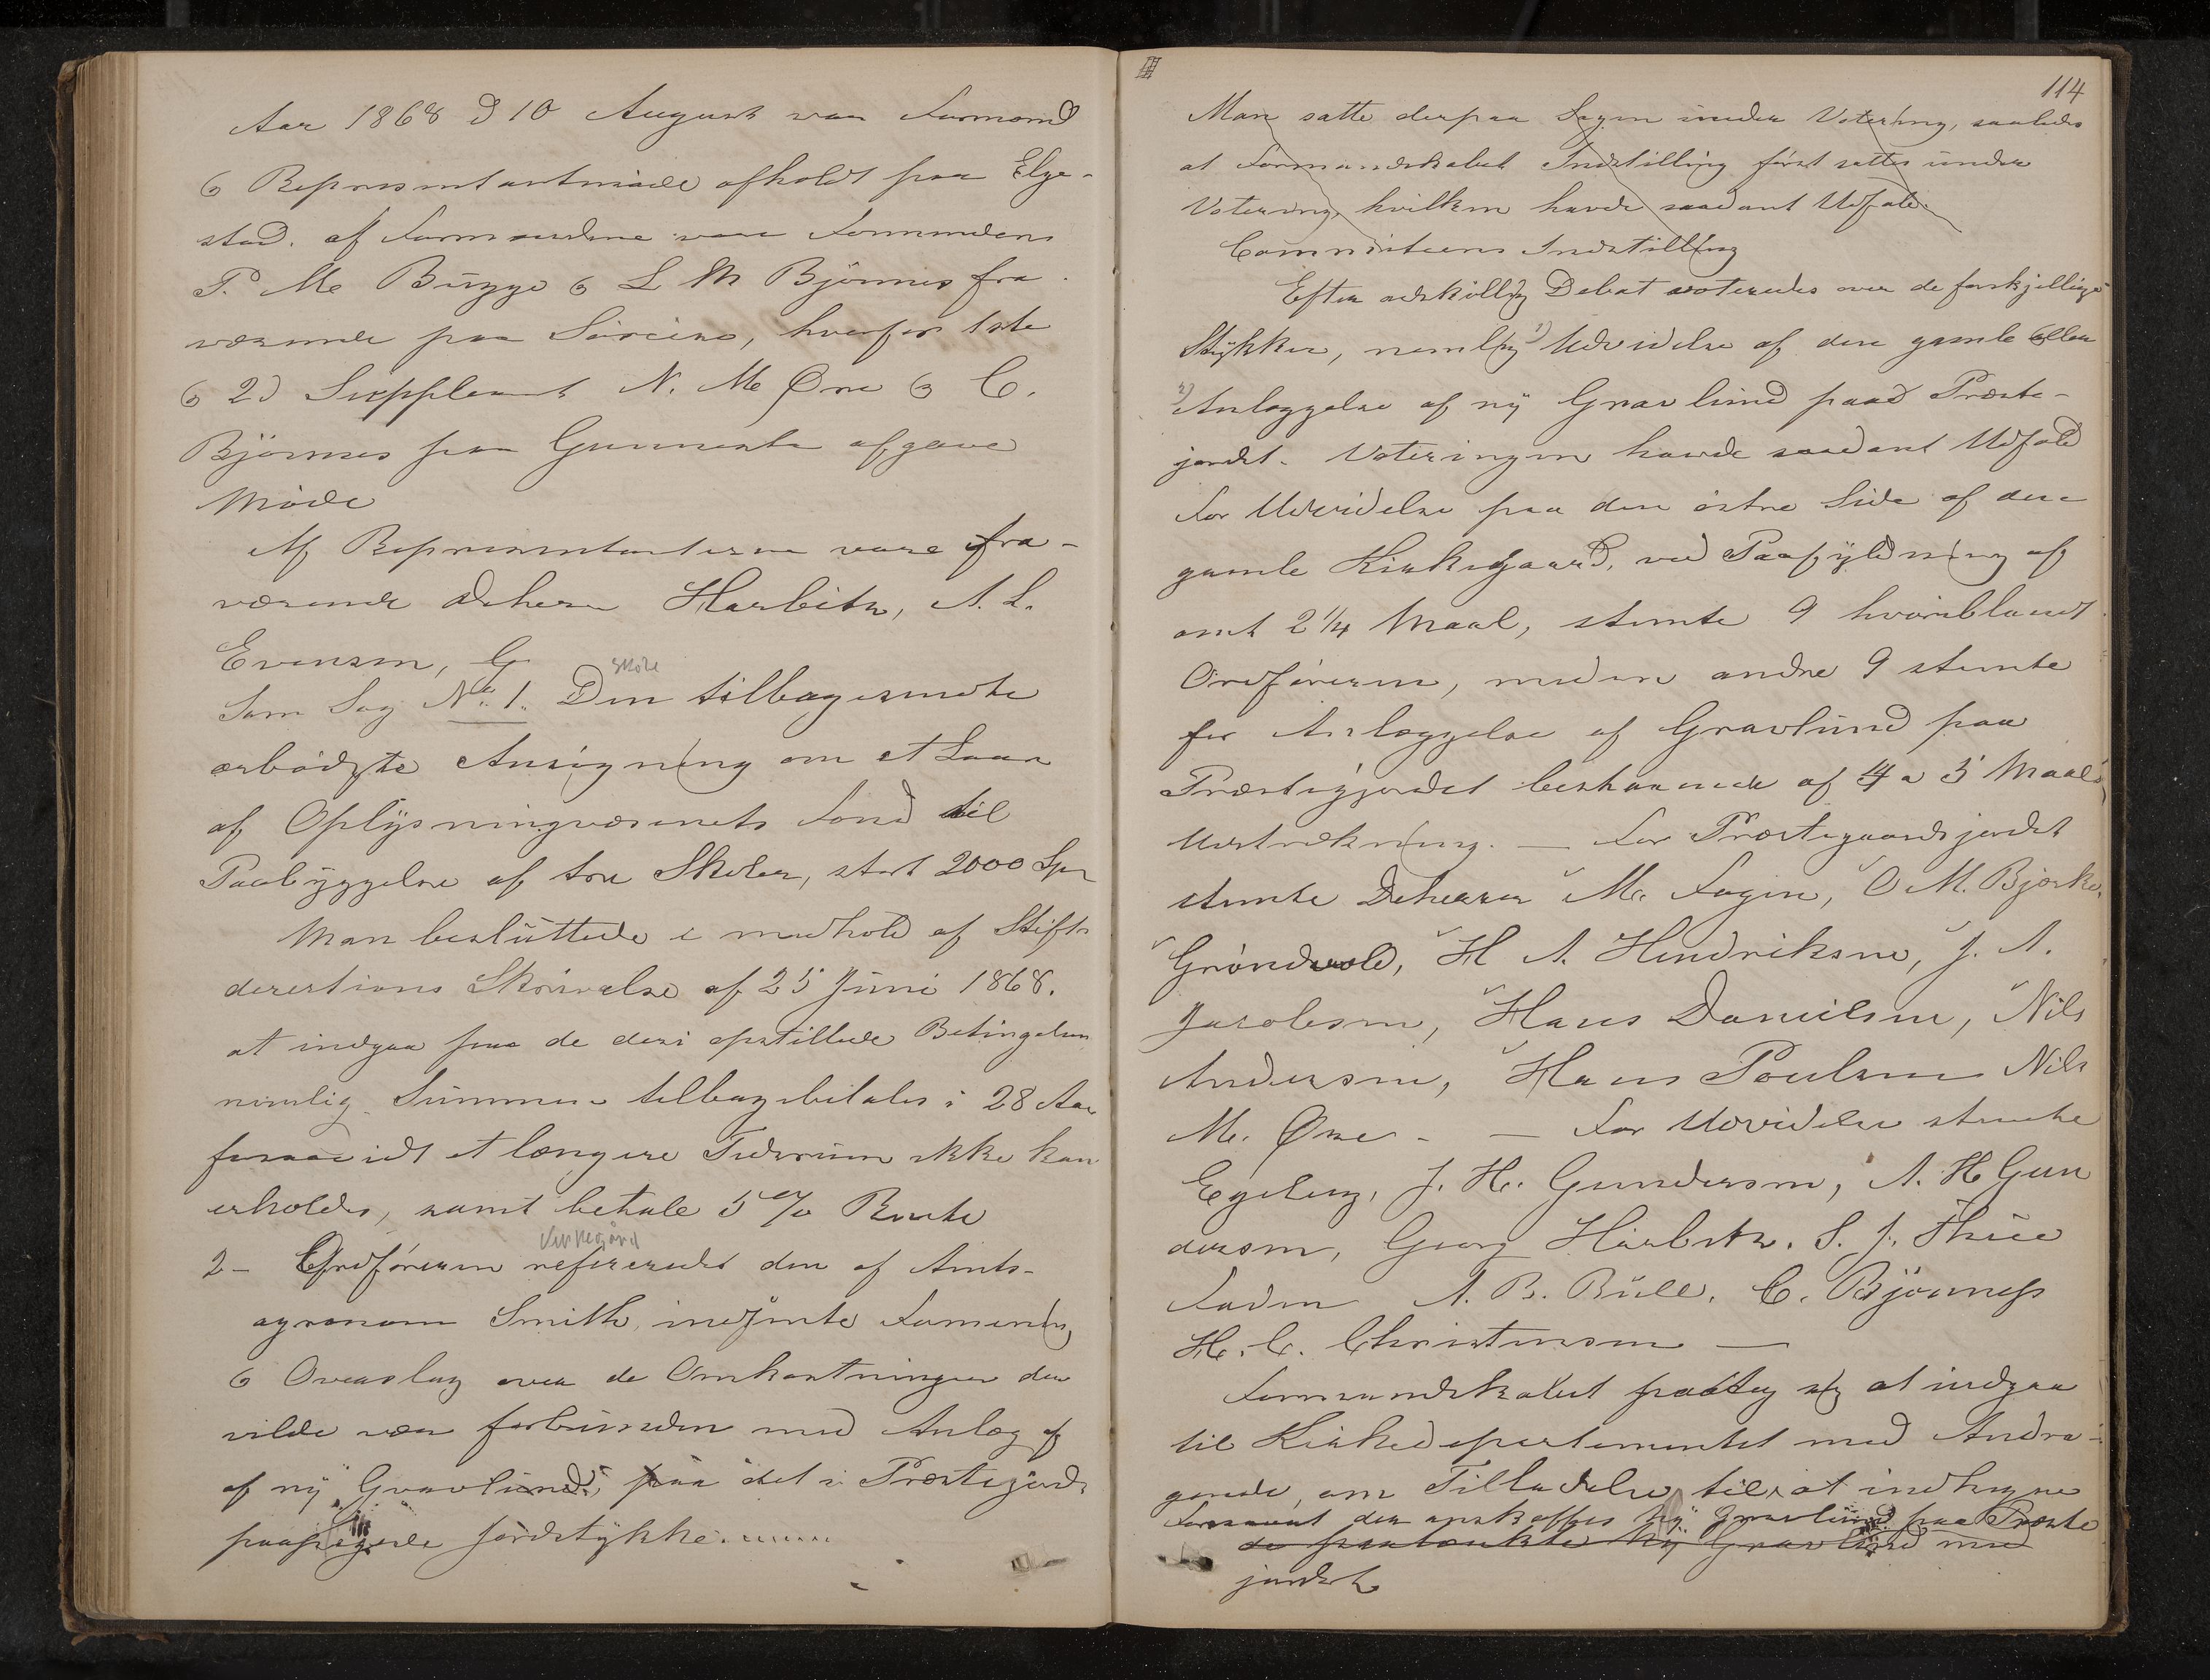 Aar 1868 d 10 August var Formand
& Representantmøde afholdt paa Elge-
stad. af Formændene vare Formanden
P. M. Bugge & L M Bjørnes fra-
værende paa Søreise, hvorfor 1ste
& 2d Suppleant N. M. Øre & C.
Bjørnes paa Gunnesta afgave
Møde
Af Representanterne vare fra-
værende dHerrer Harbitz, A. L.
Evensen, G
skole
Som Sag No. 1. Den tilbagesendte
ærbødigste Ansøgning om et Laan
af Oplysningvæsenets Fond til
Paabyggelse af tre Skoler, stort 2000 Spd
Man besluttede i medhold af Stifts
derektions Skrivelse af 25 Juni 1868.
at indgaa paa de deri opstillede Betingelser
nemlig Summen tilbagebetales i 28 Aar
forsaavidt et længere Tidsrum ikke kan
erholdes, samt betale 5 % Rente
Kirkegård
2 - Ordføreren refererede den af Amts-
agronom Smith indsendte Formening
& Overslag over de Omkostninger der
vilde være forbunden med Anlæg af
af ny Gravlund, paa det i Præstegjords
paapegede Jordstykke.......
114
Man satte derpaa Sagen under Votering, saaledes
at Formandskabets Indstilling først sattes under
Votering, hvilken havde saadant Udfald.
Commiteens Indstilling
Efter adskillig Debat voteredes over de forskjellige
Stykker, nemlig 1) Udvidelse af den gamle eller
2) Anlæggelse af ny Gravlund paa Præste-
jordet. Voteringen havde saadant Udfald
For Udvidelse paa den østre Side af den
gamle Kirkegaard, ved Paafyldning af
omt 2 1/4 Maal, stemte 9 hvoriblandt
Ordføreren, medens andre 9 stemte
for Anlæggelse af Gravlund paa
Præstegjordet bestaaende af 4 a 5 Maals
Udstrækning. — For Præstegaardsjordet
stemte Deherrer M. Fogen, O M. Bjerke,
Grøndvold, H A. Hendriksen, J. A.
Jacobsen, Hans Danielsen, Nils
Andersen, Hans Poulsen Nils
M. Øre - — For Udvidelse stemte
Egeberg, J. H. Gundersen, A. H Gun
dersen, Georg Harbitz. S. J. Thue
Faden A. B. Bull. C. Bjørness
H. C. Christensen —
Formandskabet paatog sig at indgaa
til Kirkedepartementet med Andra-
gende, om Tilladelse til at indhegne
Forsaavt der anskaffes ny Gravlund paa Præste
de paatænkte ny Gravlund med
jordet